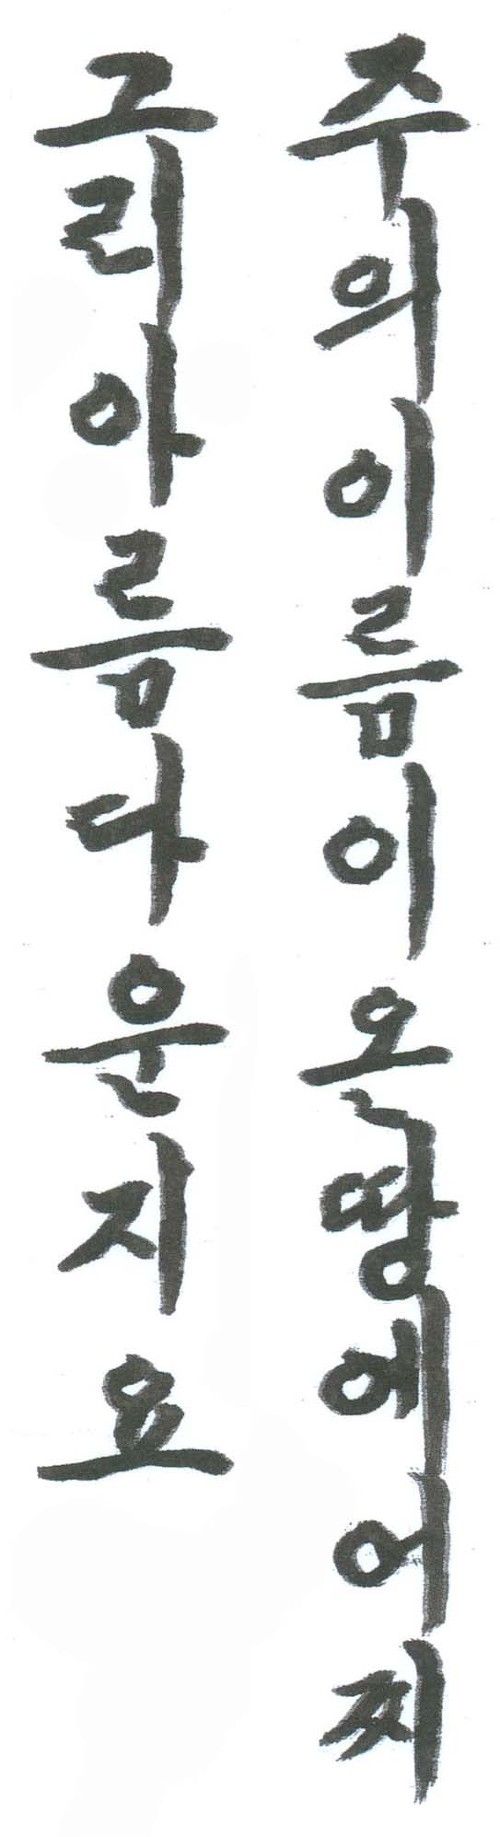 주의이름이온땅에어찌
그리아름다운지요